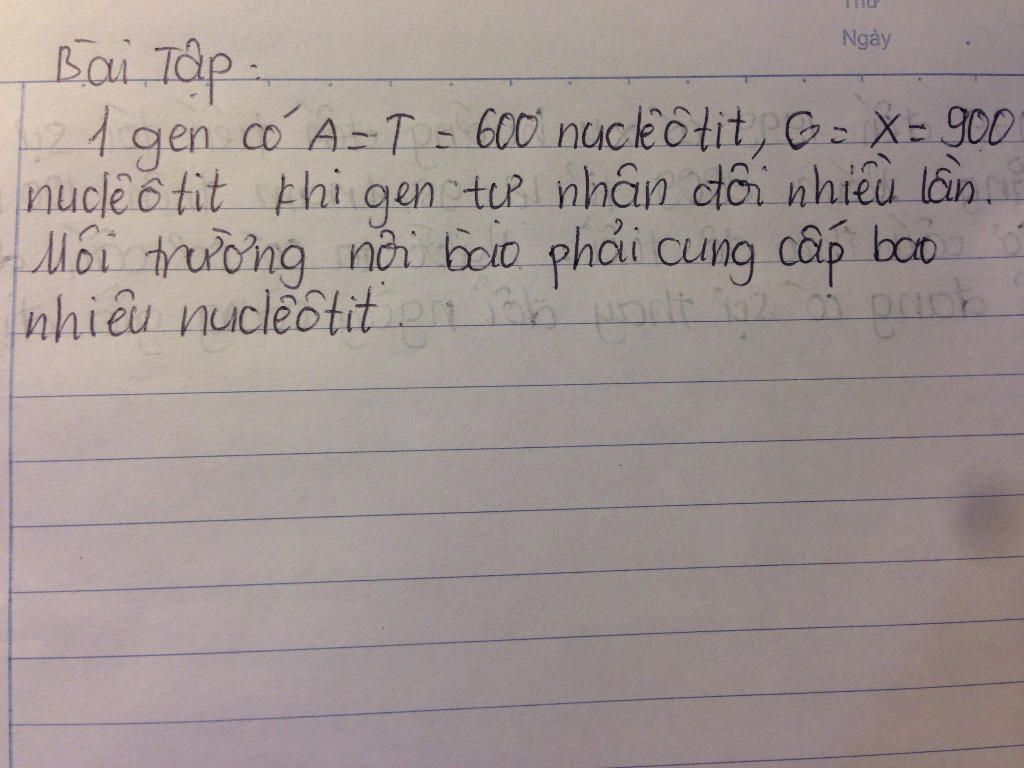 Thứ
Ngày
Bài Tập:
1 gen có A = T = 600 nuclêôtit, G = X = 900
nuclêôtit khi gen tự nhân đôi nhiều lần.
Môi trường nội bào phải cung cấp bao
nhiêu nuclêôtit.